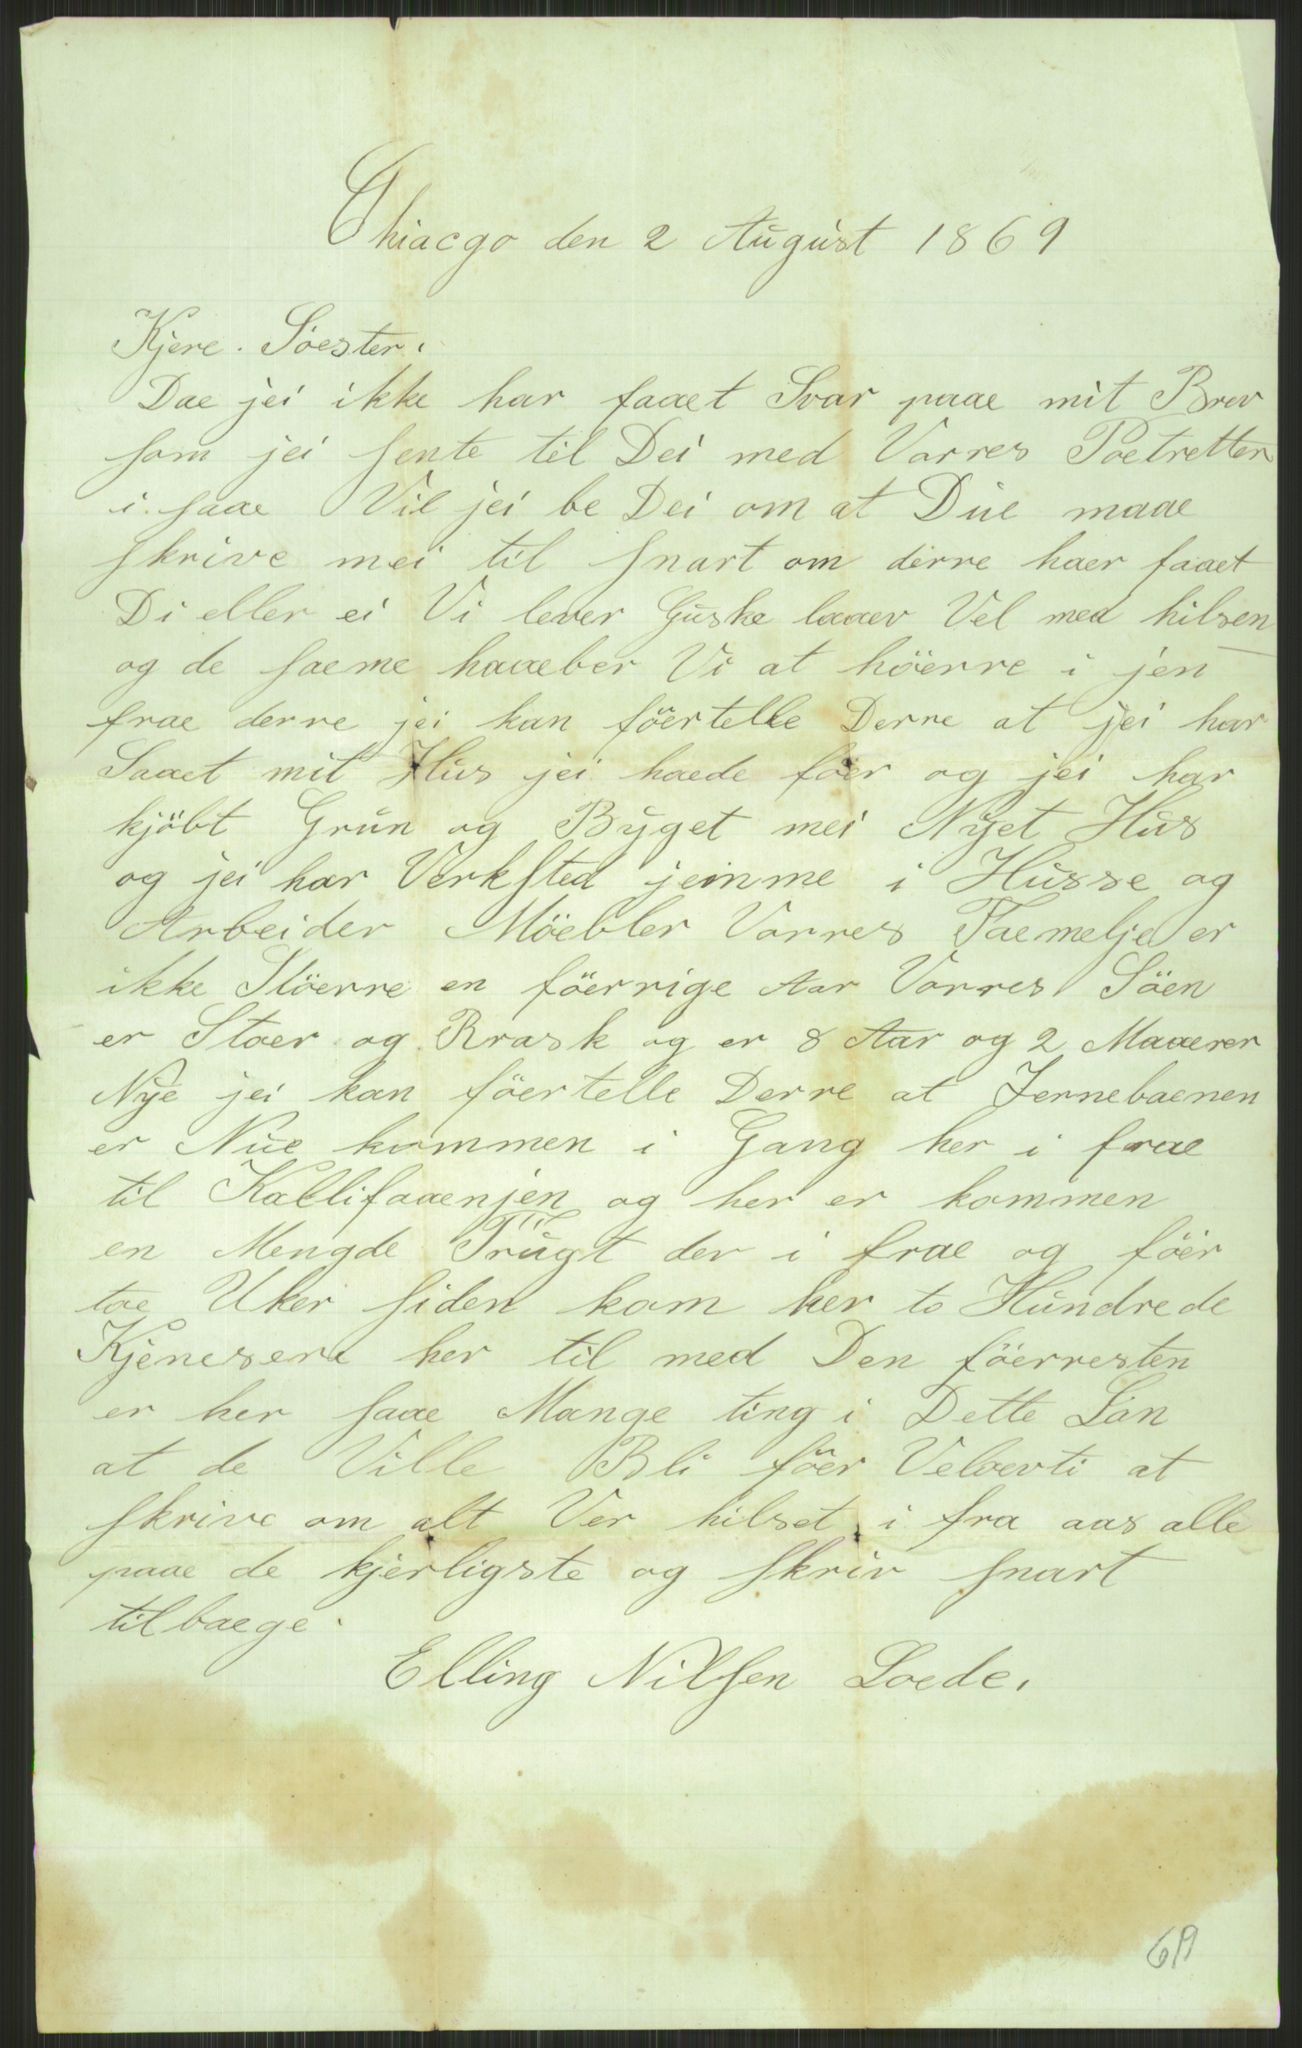 Chiacgo den 2 August 1869
Kjere. Söester.
Dae jei ikke har faaet Svar paae mit Brev
som jei sente til Dei med Varres Poetretter
i saae Vil jei be Dei om at Due maae
skrive mei til snart om derre haer faaet
Di eller ei Vi lever Guske laaev Vel med hilsen
og de saeme haaeber Vi at höerre i jen
frae derre jei kan föertelle Derre at jei har
Saaet mit Hus jei haede föer og jei har
kjöbt Grun og Byget mei Nyet Hus
og jei har Verksted jeimme i Husse og
Arbeider Möebler Varres Faemelje er
ikke Stöerre en föerrige Aar Varres Söen
er Stoer og Rrask og er 8 Aar og 2 Maaerer
Nye jei kan föertelle Derre at Jernebaenen
er Nue kommen i Gang her i frae
til Kallifaaenjen og her er kommen
en Mengde Frugt der i frae og föer
toe Uker siden kom her to Hundrede
Kjenesere her til med Den föerresten
er her saae Mange ting i Dette Lan
at de Ville Bli föer Velöevti at
skrive om alt Ver hilset i fra aas alle
paae de kjerligste og skriv snart
tilbaege.
Elling Nilsen Loede.
69